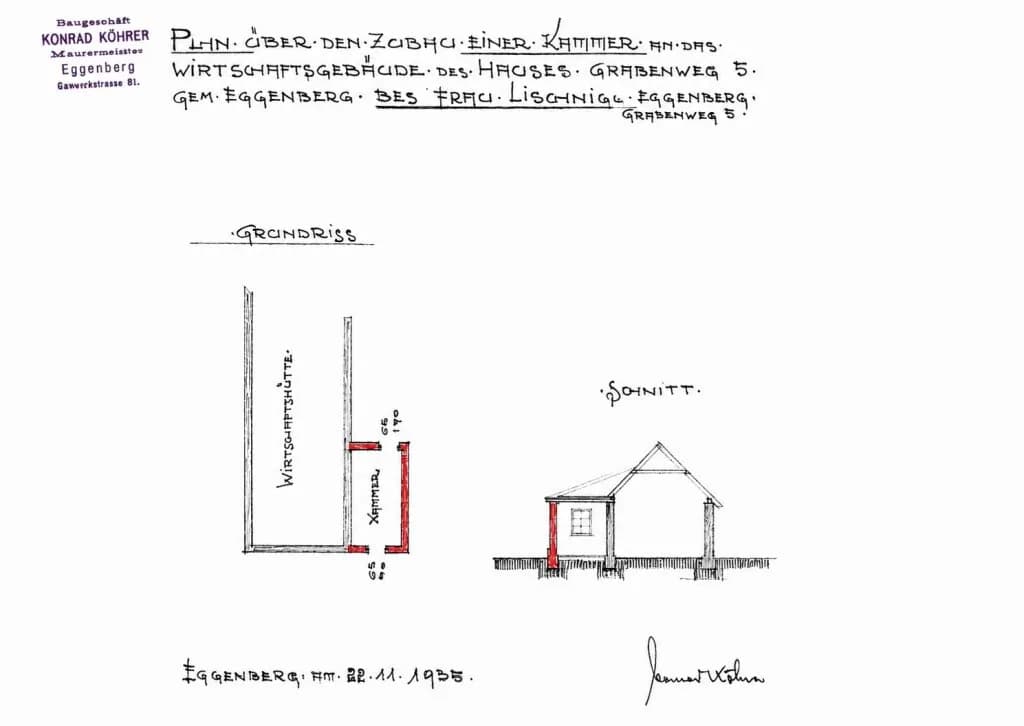 Baugeschäft
KONRAD KÖHRER
Maurermeister
Eggenberg
Gaswerkstrasse 81.
PLAN · ÜBER · DEN · ZUBAU · EINER · KAMMER · AN · DAS ·
WIRTSCHAFTSGEBÄUDE · DES · HAUSES · GRABENWEG 5 ·
GEM · EGGENBERG · BES FRAU · LISCHNIGG · EGGENBERG ·
GRABENWEG 5 ·
· GRUNDRISS
WIRTSCHAFTSHÜTTE ·
65
190
KAMMER
65
· SCHNITT ·
EGGENBERG · AM · 22 · 11 · 1935 ·
Konrad Köhrer